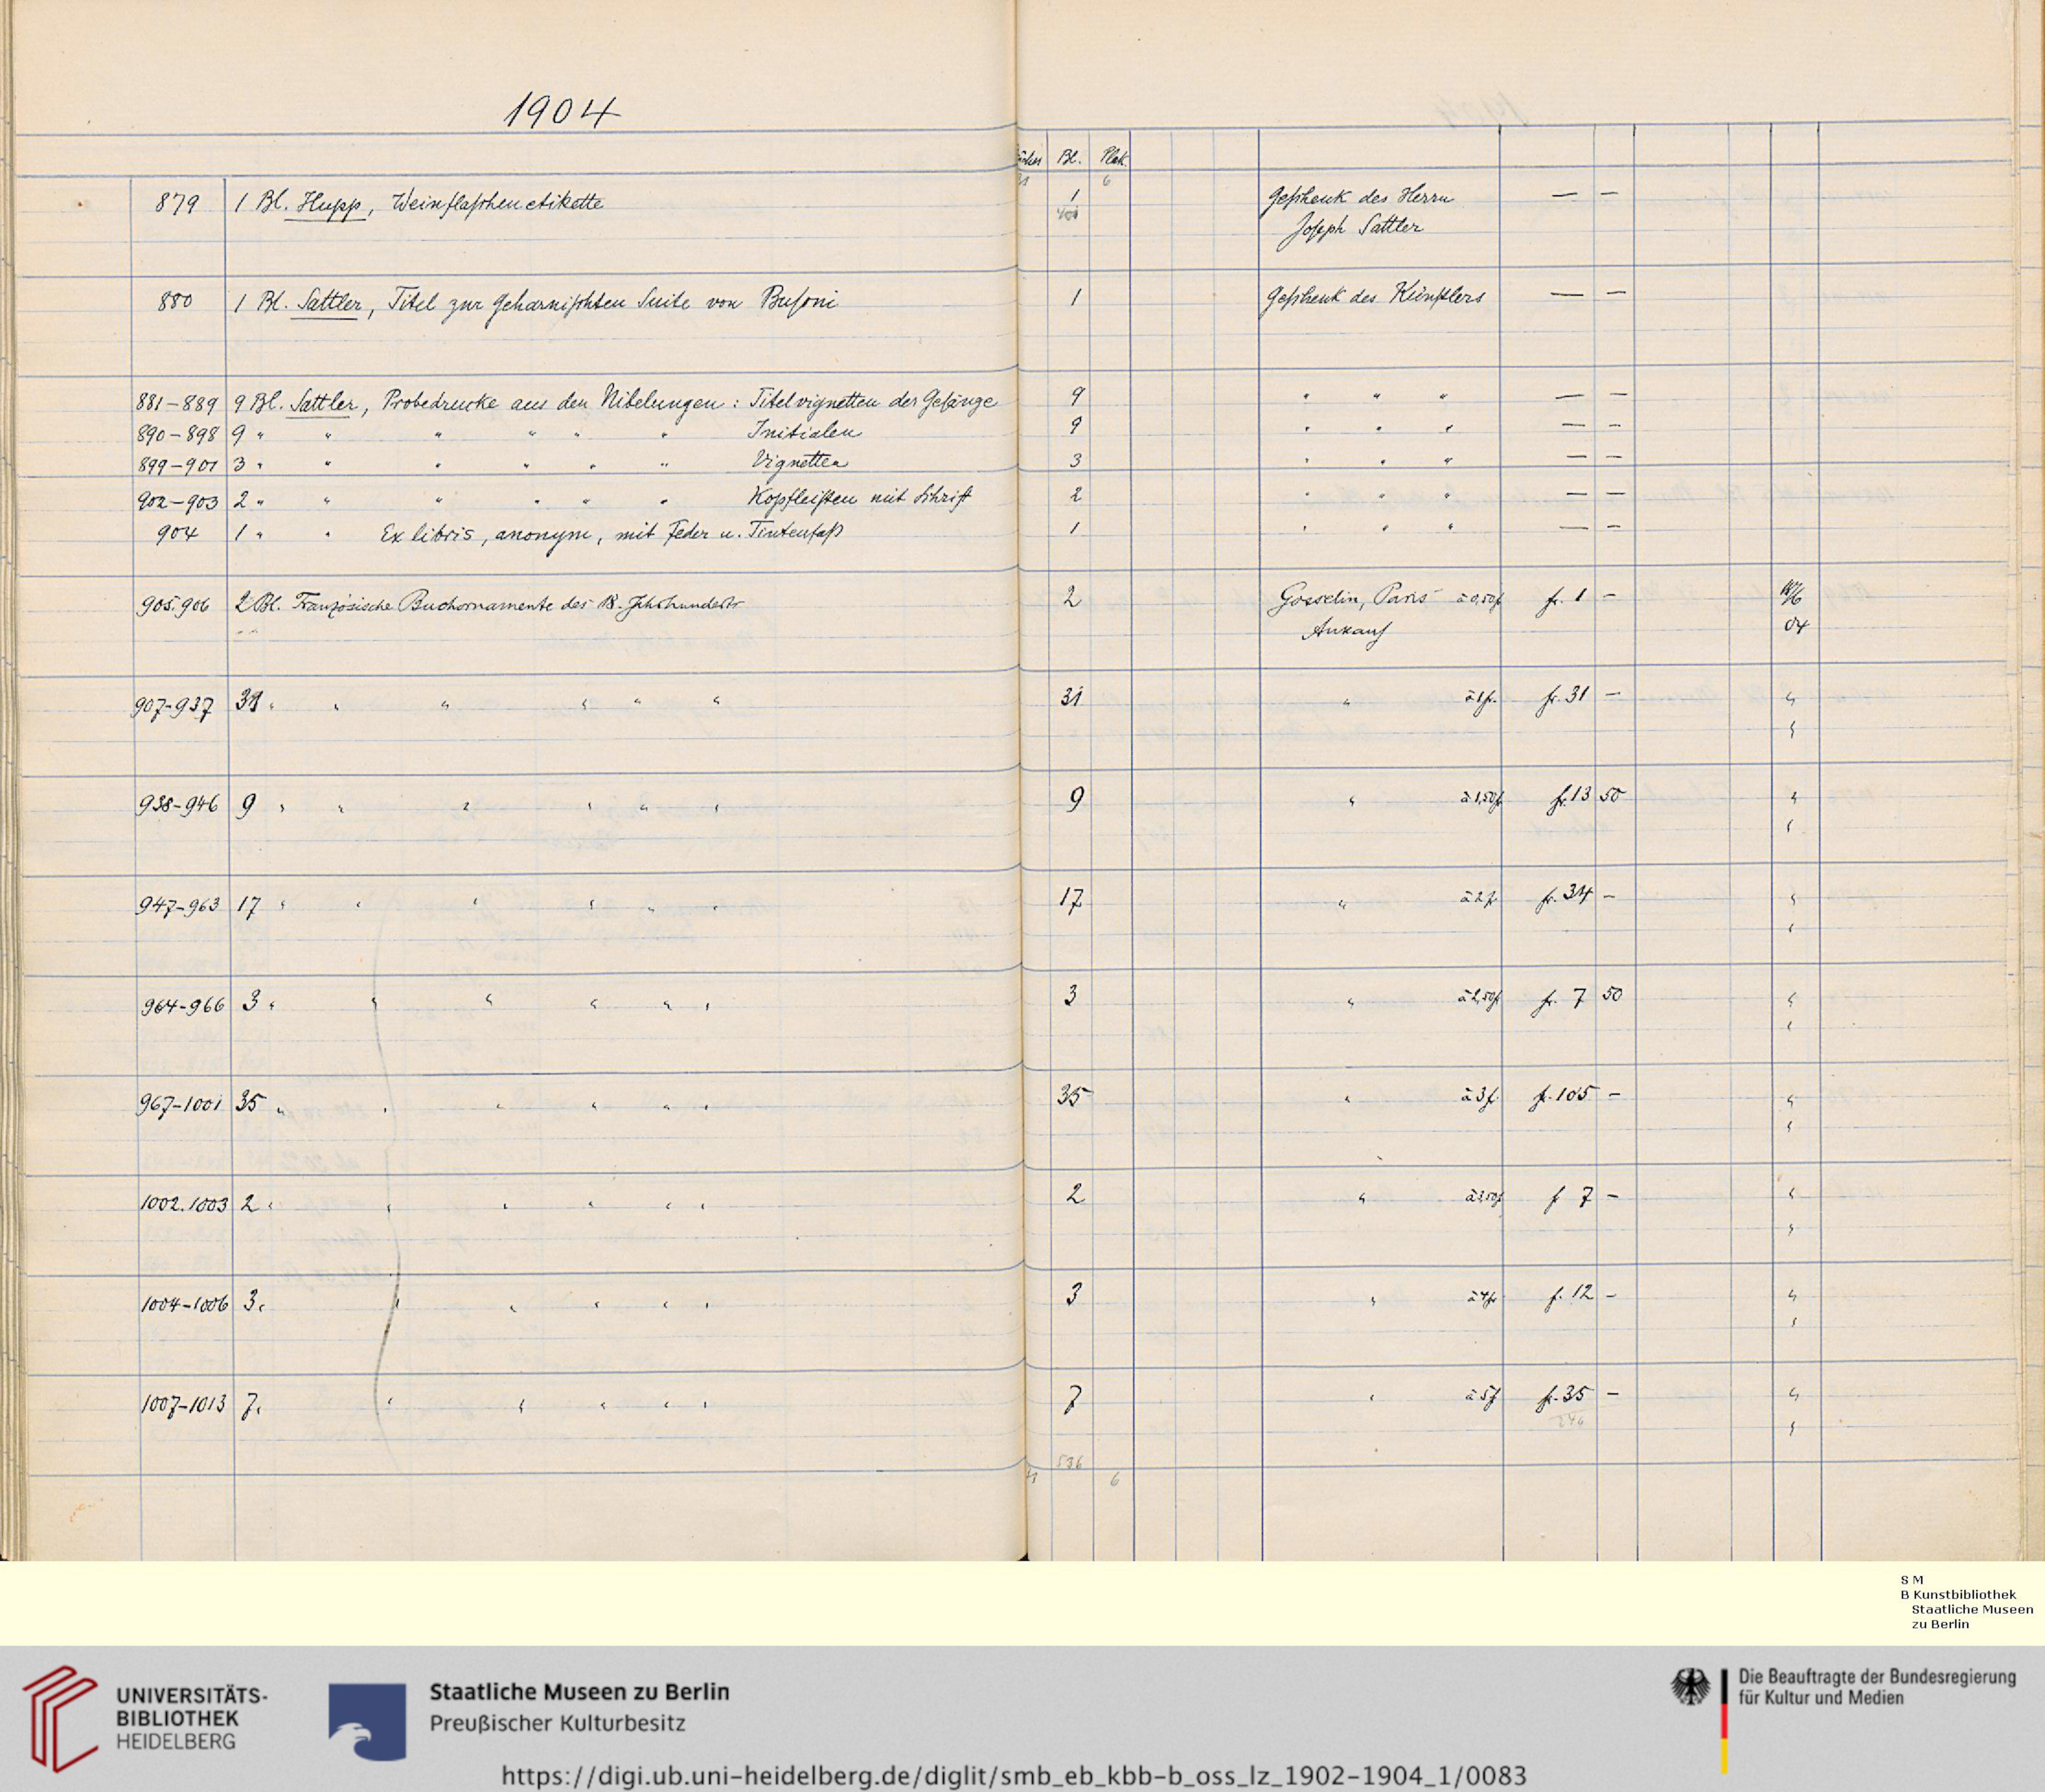 1904
Bl. Plak.
6
879 1 Bl. Hupp, Weinflaschenetikette 1 Geschenk des Herrn — —
Joseph Sattler
880 1 Bl. Sattler, Titel zur Geharnischten Suite von Busoni 1 Geschenk des Künstlers — —
881–889 9 Bl. Sattler, Probedrucke aus den Nibelungen: Titelvignetten der Gesänge 9 " " " — —
890–898 9 " " " " " " Initialen 9 " " " — —
899–901 3 " " " " " " Vignetten 3 " " " — —
902–903 2 " " " " " " Kopfleisten mit Schrift 2 " " " — —
904 1 " " Ex libris, anonym, mit Feder u. Tintenfaß 1 " " " — —
905.906 2 Bl. Französische Buchornamente des 18. Jahrhunderts 2 Gosselin, Paris à 0,50f fr. 1 —
Ankauf 04
907–937 31 " " " " " " 31 " à 1fr. fr. 31 — "
"
938–946 9 " " " " " " 9 " à 1,50f fr. 13 50 "
"
947–963 17 " " " " " " 17 " à 2f fr. 34 — "
"
964–966 3 " " " " " " 3 " à 2,50f fr. 7 50 "
"
967–1001 35 " " " " " " 35 " à 3f. fr. 105 — "
"
1002.1003 2 " " " " " " 2 " à 3,50f f 7 — "
"
1004–1006 3 " " " " " " 3 " à 4fr f. 12 — "
"
1007–1013 7 " " " " " " 7 " à 5f fr. 35 — "
246 "
536
6
S M
B Kunstbibliothek
Staatliche Museen
zu Berlin
UNIVERSITÄTS-
BIBLIOTHEK
HEIDELBERG
Staatliche Museen zu Berlin
Preußischer Kulturbesitz
Die Beauftragte der Bundesregierung
für Kultur und Medien
https://digi.ub.uni-heidelberg.de/diglit/smb_eb_kbb-b_oss_lz_1902-1904_1/0083